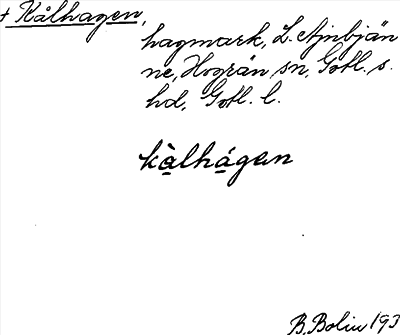 + Kålhagen,
hagmark, L. Ajnbjän
ne, Hogrän sn, Gotl. s.
hd, Gotl. l.
kà̱lhá̱gen
B. Bolin 193